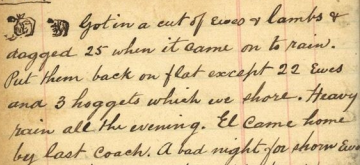 Got in a cut of Ewes & lambs &
dagged 25 when it came on to rain.
Put them back on flat except 22 Ewes
and 3 hoggets which we shore. Heavy
rain all the evening. El came home
by last coach. A bad night for shorn Ewes